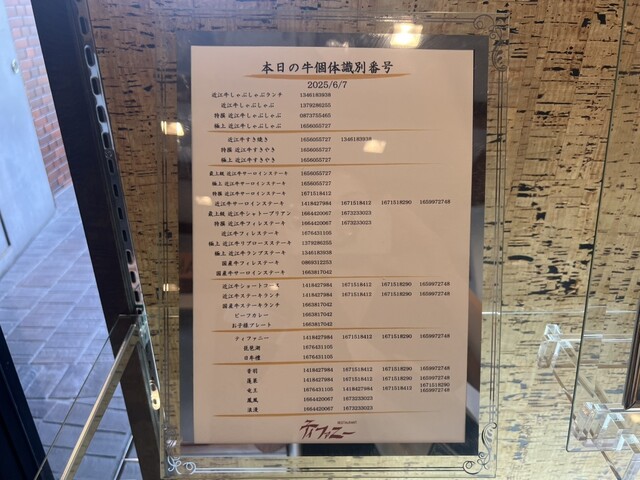 本日の牛個体識別番号
2025/6/7
近江牛しゃぶしゃぶランチ 1346183938
近江牛しゃぶしゃぶ 1379286255
特撰 近江牛しゃぶしゃぶ 0873755465
極上 近江牛しゃぶしゃぶ 1656055727
近江牛すき焼き 1656055727 1346183938
特撰 近江牛すきやき 1656055727
極上 近江牛すきやき 1656055727
最上級 近江牛サーロインステーキ 1656055727
極上 近江牛サーロインステーキ 1656055727
特撰 近江牛サーロインステーキ 1671518412
近江牛サーロインステーキ 1418427984 1671518412 1671518290 1659972748
最上級 近江牛シャトーブリアン 1664420067 1673233023
特撰 近江牛フィレステーキ 1664420067 1673233023
近江牛フィレステーキ 1676431105
極上 近江牛リブロースステーキ 1379286255
極上 近江牛ランプステーキ 1346183938
国産牛フィレステーキ 0869312253
国産牛サーロインステーキ 1663817042
近江牛ショートコース 1418427984 1671518412 1671518290 1659972748
近江牛ステーキランチ 1418427984 1671518412 1671518290 1659972748
国産牛ステーキランチ 1663817042
ビーフカレー 1663817042
お子様プレート 1663817042
ティファニー 1418427984 1671518412 1671518290 1659972748
琵琶湖 1676431105
日牟禮 1676431105
1418427984 1671518412 1671518290 1659972748
蓬莱 1418427984 1671518412 1671518290 1659972748
1676431105 1418427984 1671518412 1671518290 1659972748
鳳凰 1664420067 1673233023
浪漫 1664420067 1673233023
RESTAURANT
ティファニー